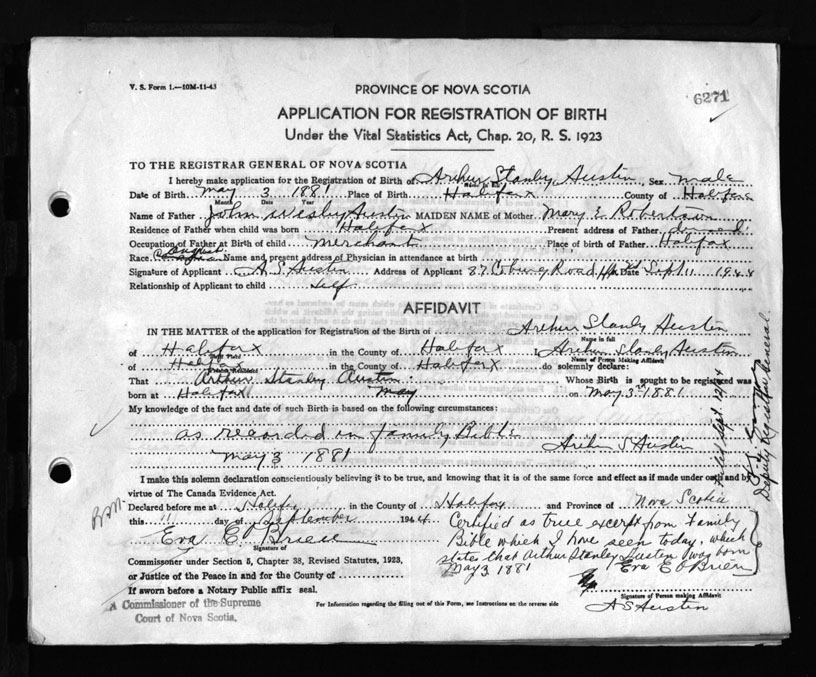 V. S. Form 1.—10M-11-43
PROVINCE OF NOVA SCOTIA
6271
APPLICATION FOR REGISTRATION OF BIRTH
Under the Vital Statistics Act, Chap. 20, R. S. 1923
TO THE REGISTRAR GENERAL OF NOVA SCOTIA
I hereby make application for the Registration of Birth of Arthur Stanley Austin, Sex male
Name in full
Date of Birth May 3 1881 Place of Birth Halifax County of Halifax
Month Date Year
Name of Father John Wesley Austin MAIDEN NAME of Mother Mary E. Robertson
Residence of Father when child was born Halifax Present address of Father
Occupation of Father at Birth of child Merchant Place of birth of Father Halifax
Race Name and present address of Physician in attendance at birth
Signature of Applicant A. S. Austin Address of Applicant 87 Coburg Road Date Sept 11 1944
Relationship of Applicant to child Self
AFFIDAVIT
IN THE MATTER of the application for Registration of the Birth of Arthur Stanly Austin
Name in full
of Halifax in the County of Halifax Arthur Stanly Austin
Name of Person Making Affidavit
of Halifax in the County of Halifax do solemnly declare:
That Arthur Stanley Austin Whose Birth is sought to be registered was
born at Halifax May on May 3rd 1881
My knowledge of the fact and date of such Birth is based on the following circumstances:
as recorded in family Bible Arthur S Austin
May 3 1881
I make this solemn declaration conscientiously believing it to be true, and knowing that it is of the same force and effect as if made under oath and by
virtue of The Canada Evidence Act.
Declared before me at Halifax in the County of Halifax and Province of Nova Scotia
this 11 day of September 1944
Certified as true excerpt from Family
Bible which I have seen today, which
states that Arthur Stanley Austin was born
May 3 1881 Eva E O'Brien
Eva E O'Brien
Signature of
Commissoner under Section 5, Chapter 38, Revised Statutes, 1923,
or Justice of the Peace in and for the County of
If sworn before a Notary Public affix seal.
A S Austin
Signature of Person making Affidavit
A Commissioner of the Supreme
Court of Nova Scotia.
For Information regarding the filling out of this Form, see Instructions on the reverse side
Filed Sept. 12/44
Deputy Registrar General